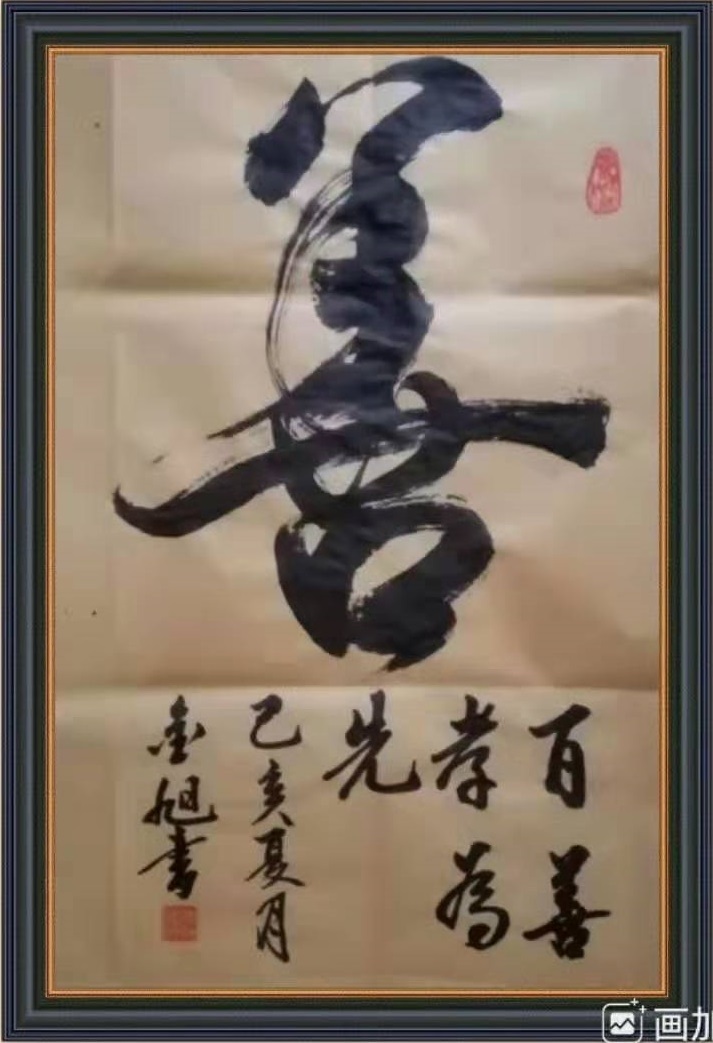 善
百善
孝為
先
己亥夏月
金旭書
画加